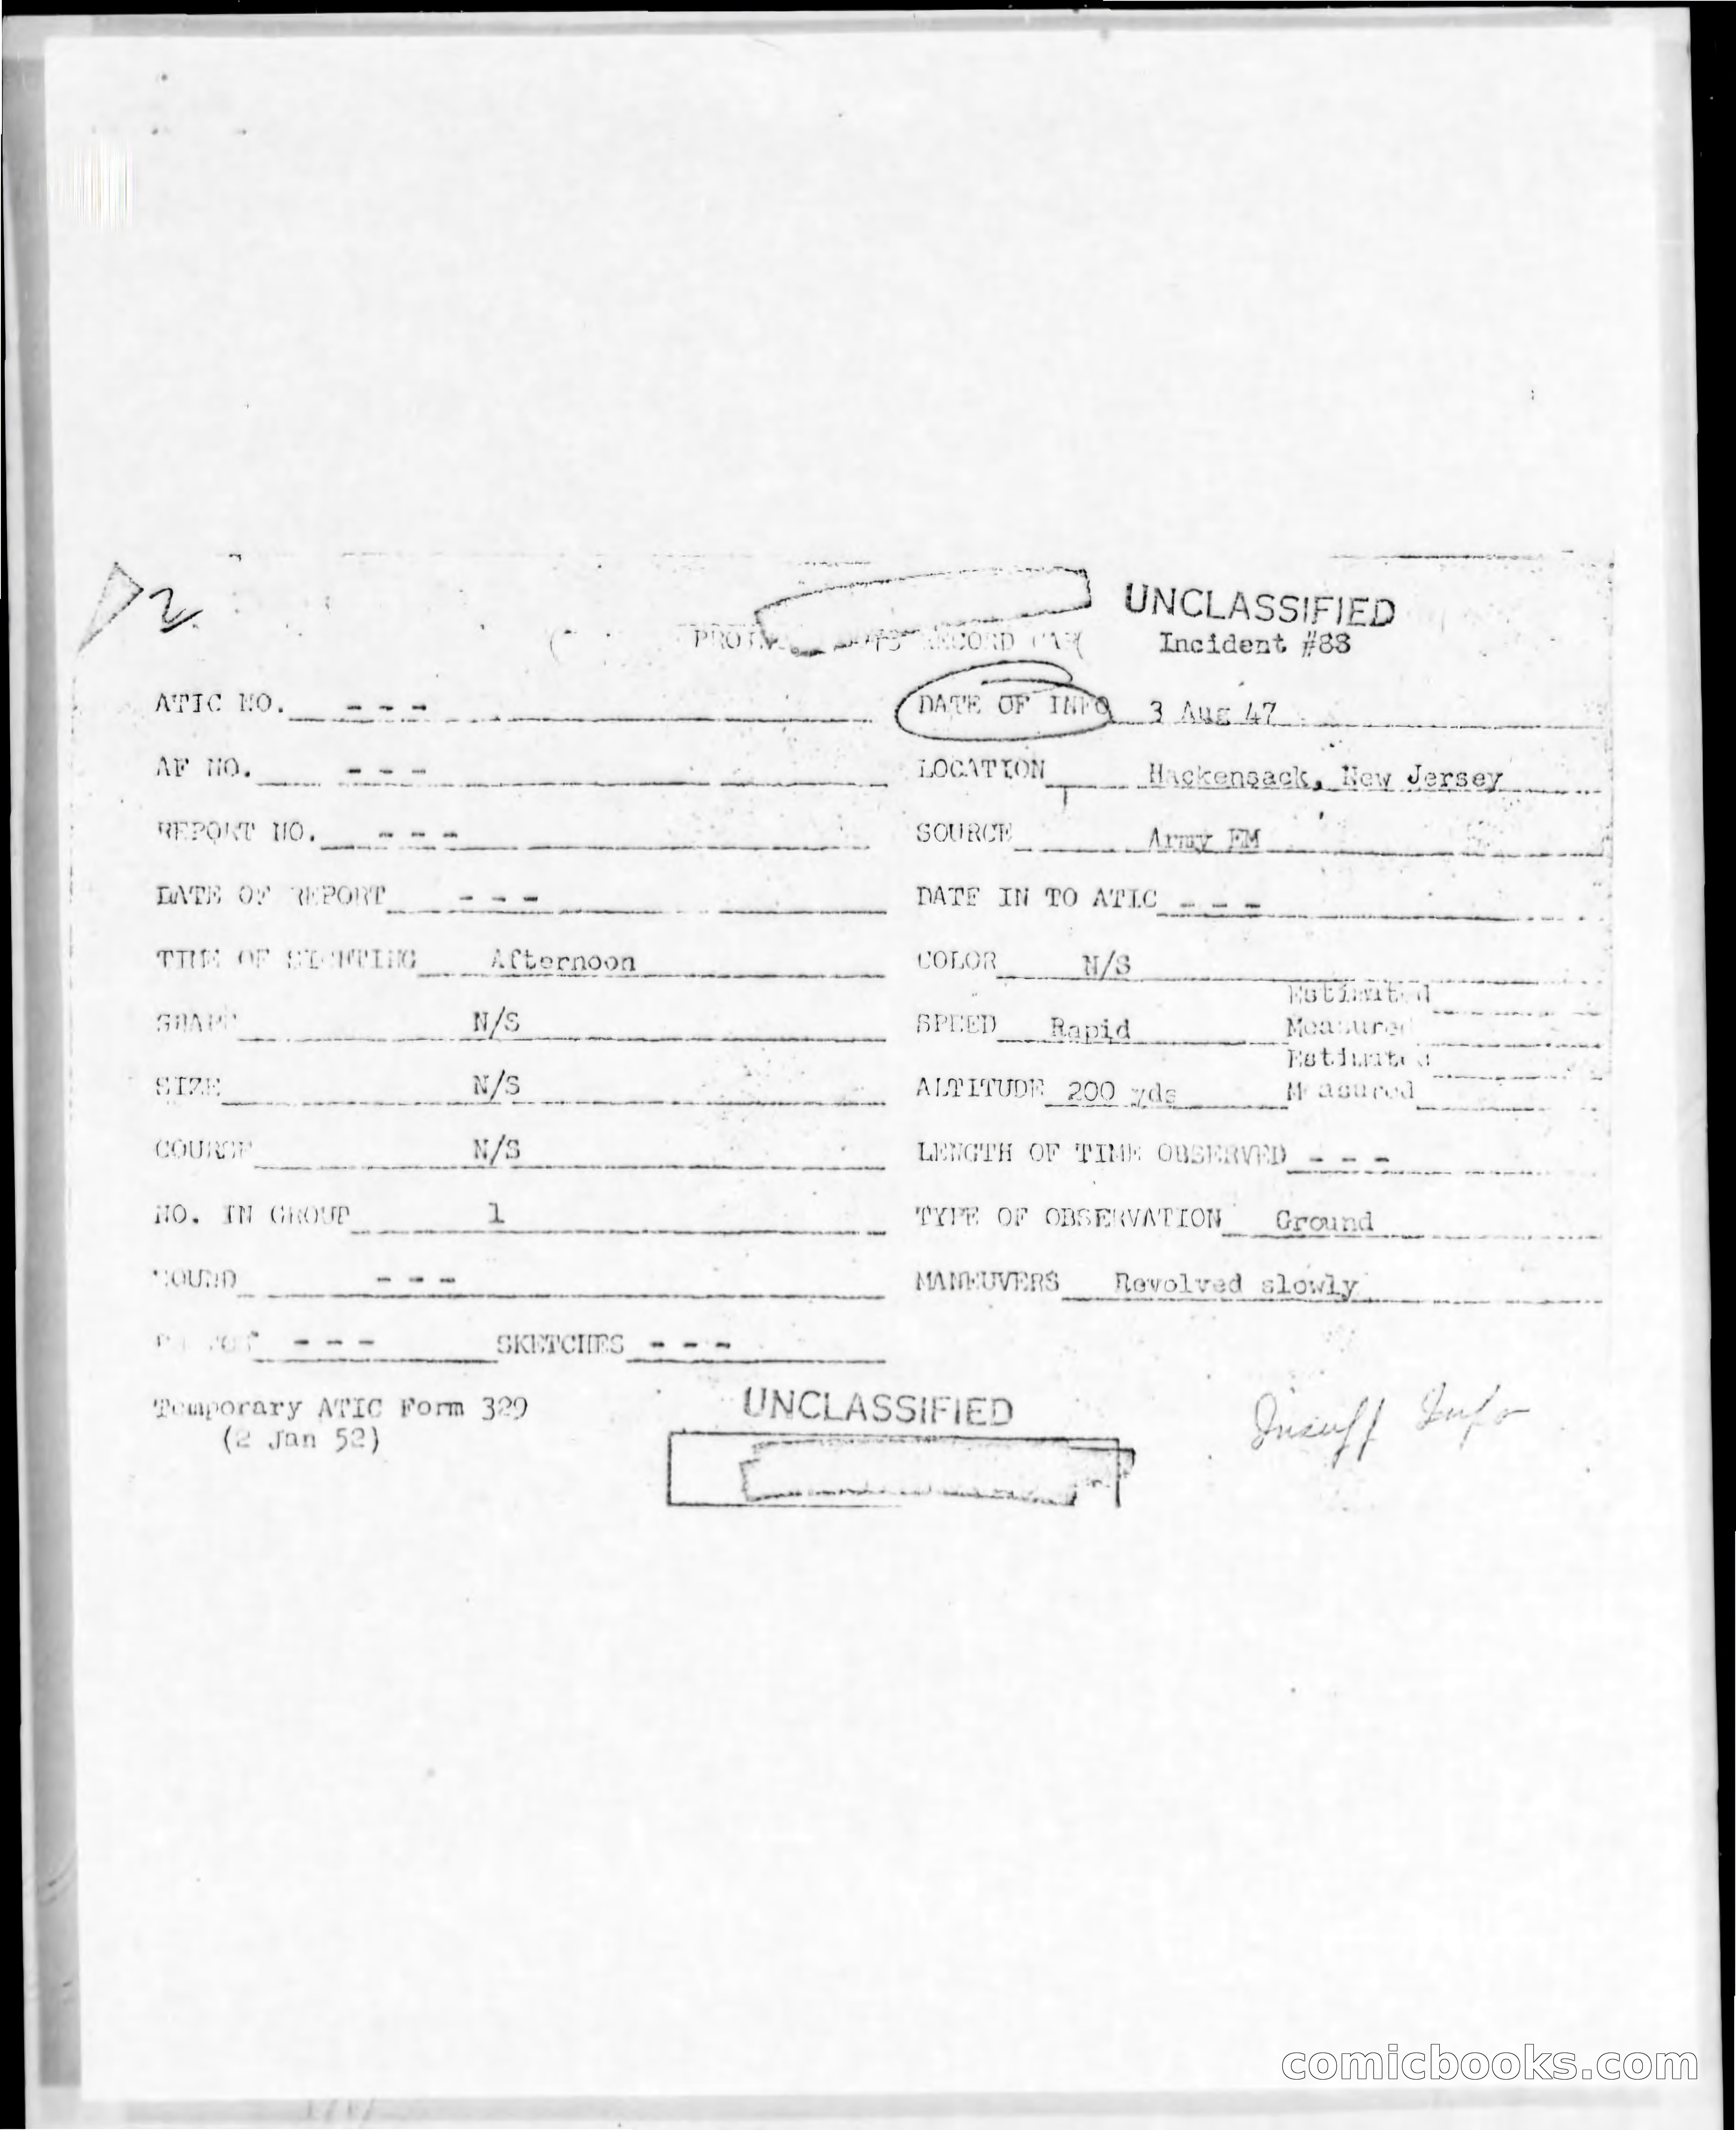 2
UNCLASSIFIED
RECORD
Incident #88
ATIC NO. - - - DATE OF INFO 3 Aug 47
AF NO. - - - LOCATION Hackensack, New Jersey
REPORT NO. - - - SOURCE Army EM
DATE OF REPORT - - - DATE IN TO ATIC - - -
TIME OF SIGHTING Afternoon COLOR N/S
Estimated
SHAPE N/S SPEED Rapid Measured
Estimated
SIZE N/S ALTITUDE 200 yds Measured
COURSE N/S LENGTH OF TIME OBSERVED - - -
NO. IN GROUP 1 TYPE OF OBSERVATION Ground
SOUND - - - MANEUVERS Revolved slowly
- - - SKETCHES - - -
Temporary ATIC Form 329
(2 Jan 52)
UNCLASSIFIED
Insuff Info
comicbooks.com